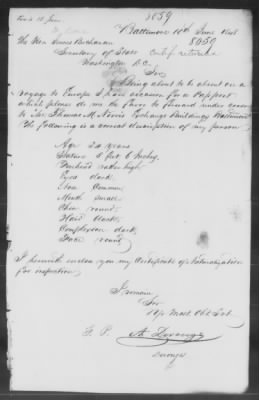 8059
Baltimore 10th June 1848
The Hon James Buchanan
8059
Secretary of State
Certif returned
Washington D.C.
Sir
Being about to be about on a
voyage to Europe I have occasion for a Passport
which please do me the favor to forward under cover
to Mr Thomas M. Norris Exchange Buildings Baltimore
The following is a correct description of my person
Age 24 years
Stature 5 feet 6 Inches
Forehead rather high
Eyes dark
Nose Common
Mouth small
Chin round
Hair dark
Complexion dark
Face round
I herewith enclose you my Certificate of Naturalization
for inspection
I remain
Sir
Yr Most Obt Svt
F. P.